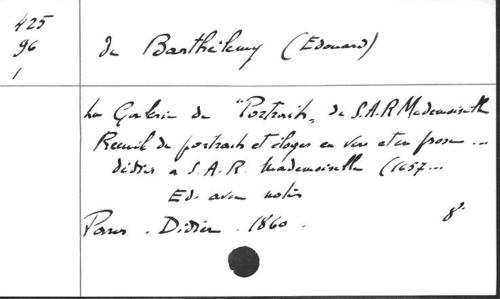 425
96
1
de Barthélemy (Edouard)
La Galerie de "Portraits" de S.A.R Mademoiselle
Recueil de portraits et éloges en vers et en prose ...
dédiés a S. A. R. Mademoiselle (1657...
Ed. avec notes
Paris. Didier. 1860. 8°